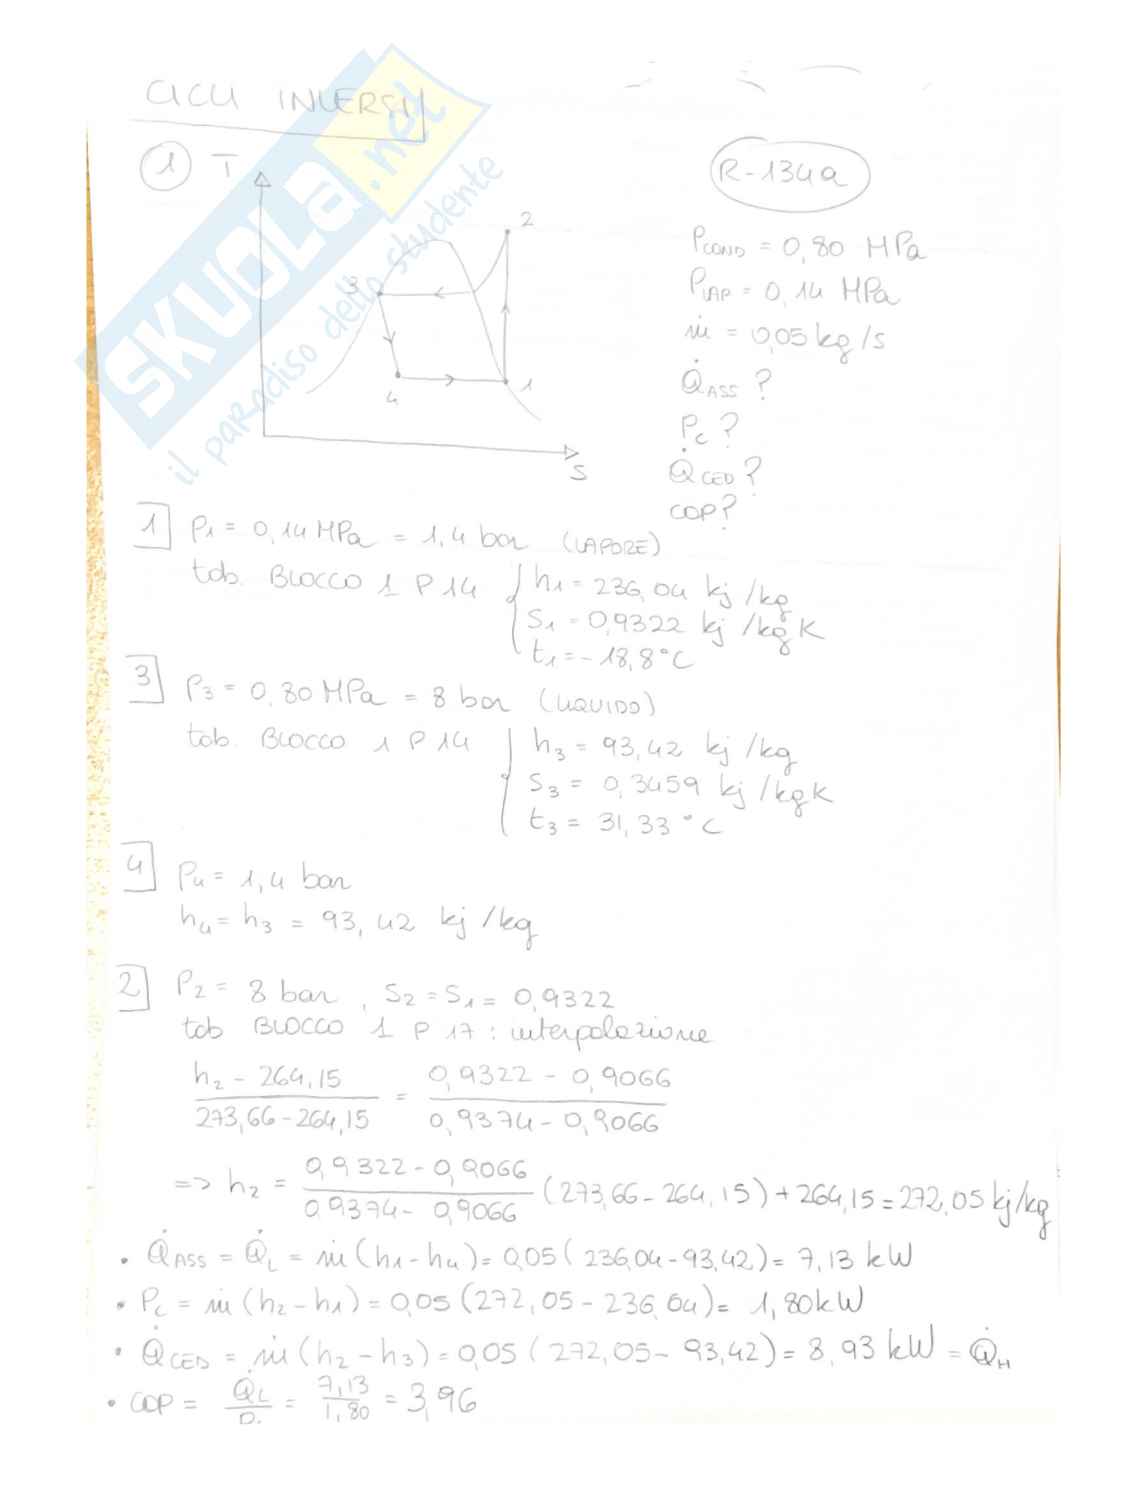 CICLI INVERSI
SKUOLA.net
il paradiso dello studente
1 T
R-134a
2
3
4
1
S
PCOND = 0,80 MPa
PVAP = 0,14 MPa
ṁ = 0,05 kg/s
Q̇ASS ?
Pc ?
Q̇CED ?
COP?
1 P1 = 0,14 MPa = 1,4 bar (VAPORE)
tab. BLOCCO 1 P 14 { h1 = 236,04 kj /kg
S1 = 0,9322 kj /kg K
t1 = -18,8°C
3 P3 = 0,80 MPa = 8 bar (LIQUIDO)
tab. BLOCCO 1 P 14 { h3 = 93,42 kj /kg
S3 = 0,3459 kj /kg K
t3 = 31,33 °C
4 P4 = 1,4 bar
h4 = h3 = 93,42 kj /kg
2 P2 = 8 bar , S2 = S1 = 0,9322
tab BLOCCO 1 P 17 : interpolazione
h2 - 264,15 / 273,66 - 264,15 = 0,9322 - 0,9066 / 0,9374 - 0,9066
=> h2 = 0,9322 - 0,9066 / 0,9374 - 0,9066 (273,66 - 264,15) + 264,15 = 272,05 kj/kg
• Q̇ASS = Q̇L = ṁ (h1 - h4) = 0,05 (236,04 - 93,42) = 7,13 kW
• Pc = ṁ (h2 - h1) = 0,05 (272,05 - 236,04) = 1,80 kW
• Q̇CED = ṁ (h2 - h3) = 0,05 (272,05 - 93,42) = 8,93 kW = Q̇H
• COP = Q̇L / Pc = 7,13 / 1,80 = 3,96